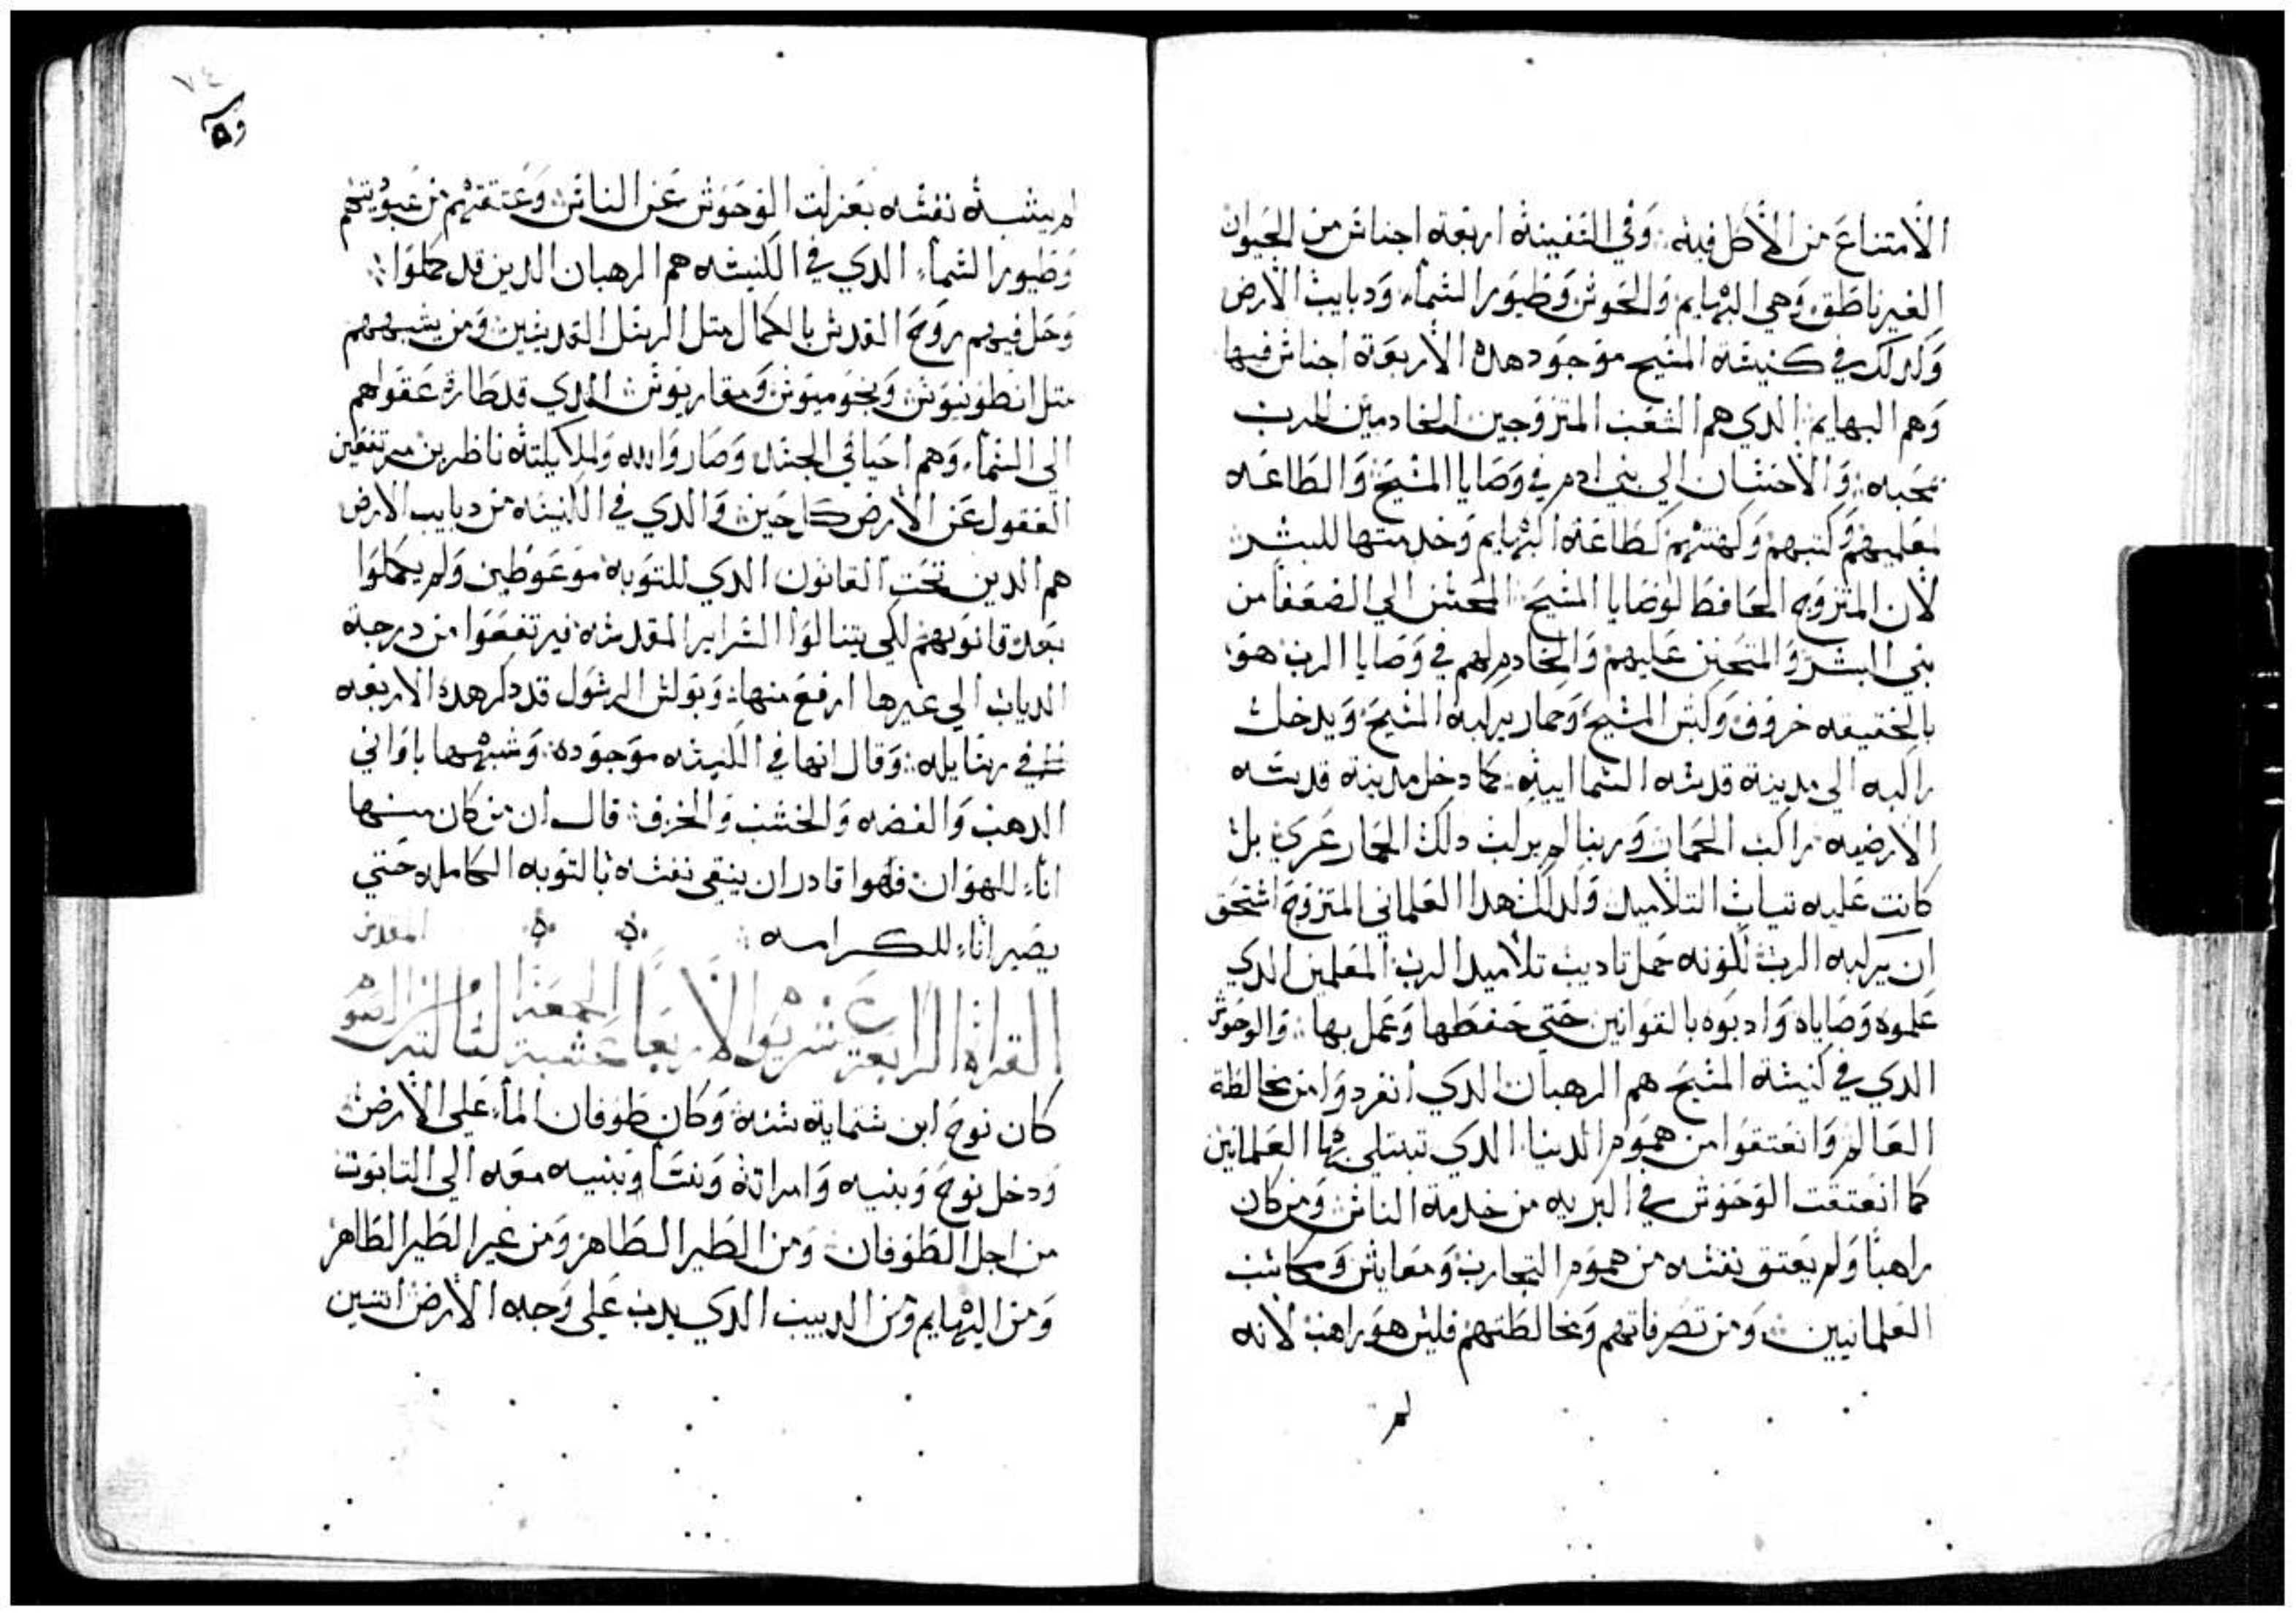 الامتناع من الاكل فيه وفي السفينة اربعة اجناس من الحيوان
الغير ناطق وهي البهايم والحوش وطيور السماء ودبايب الارض
وكدلك في كنيسة المسيح موجود هده الاربعة اجناس فيها
وهم البهايم الدي هم الشعب المتزوجين الخادمين للرب
بمحبه والاحسان الي بني ادم في وصايا المسيح والطاعه
لمعلميهم وكتبهم وكهنتهم كطاعة البهايم وخدمتها للبشر
لان المتزوج الحافظ لوصايا المسيح المحسن الي الضعفا من
بني البشر والمتحنن عليهم والخادم لهم في وصايا الرب هو
بالحقيقه خروف وكبش المسيح وحمار يركبه المسيح ويدخل
راكبه الي مدينة قدسه السماييه كما دخل مدينة قدسه
الارضيه راكب الحمار وربنا لم يركب دلك الحمار عري بل
كانت عليه تياب التلاميد ولدلك هدا العلماني المتزوج استحق
ان يركبه الرب لكونه حمل تاديب تلاميد الرب المعلمين الدي
علموه وصاياه وادبوه بالقوانين حتي حفظها وعمل بها والوحوش
الدي في كنيسة المسيح هم الرهبان الدي انفردوا من مخالطة
العالم وانعتقوا من هموم الدنيا الدي تبتلي بها العلمانين
كما انعتقت الوحوش في البريه من خدمة الناس ومن كان
راهبا ولم يعتق نفسه من هموم التجارب ومعايش ومكاسب
العلمانيين ومن تصرفاتهم ومخالطتهم فليس هو راهب لانه
لم
٧٤
لم يشبه نفسه بعزلت الوحوش عن الناس وعتقتهم من عبوديتهم
وطيور السماء الدي في الكنيسه هم الرهبان الدين قد كملوا
وحل فيهم روح القدس بالكمال متل الرسل القديسين ومن يشبههم
متل انطونيوس وبخوميوس ومقاريوس الدي قد طارة عقولهم
الي السماء وهم احيا في الجسد وصاروا لله وملايكته ناظرين مرتفعين
العقول عن الارض كل حين والدي في الكنيسه من دبايب الارض
هم الدين تحت القانون الدي للتوبه موعوظين ولم يكملوا
بعد قانونهم لكي يتنالوا السراير المقدسه فيرتفعوا من درجة
الدباب الي غيرها ارفع منها وبولس الرسول قد دكر هده الاربعه
في رسايله وقال انها في الكنيسه موجوده وشبهها باواني
الدهب والفضه والخشب والخزف قال ان من كان منها
اناء للهوان فهوا قادر ان ينقي نفسه بالتوبه الكامله حتي
يصير اناء للكرامه
القراة الرابعة عشر يوم الاربعا عشية الجمعة التالته من الصوم المقدس
كان نوح ابن ستماية سنة وكان طوفان الماء علي الارض
ودخل نوح وبنيه وامراته ونسا وبنيه معه الي التابوت
من اجل الطوفان ومن الطير الطاهر ومن غير الطير الطاهر
ومن البهايم ومن الدبيب الدي يدب علي وجه الارض اتنين